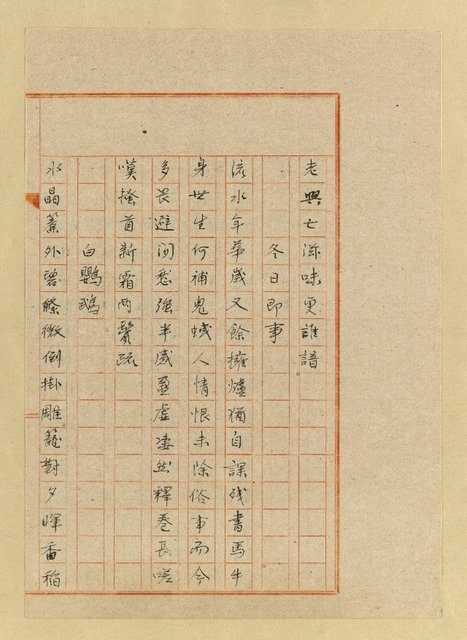 老興亡滋味更誰諳
冬日即事
流水年華歲又餘擁爐猶自課殘書馬牛
身世生何補鬼蜮人情恨未除俗事而今
多畏避閒愁強半感盈虛凄然釋卷長嗟
嘆搔首新霜兩鬢疏
白鸚鵡
水晶簾外碧縧微倒掛雕籠對夕暉香稻